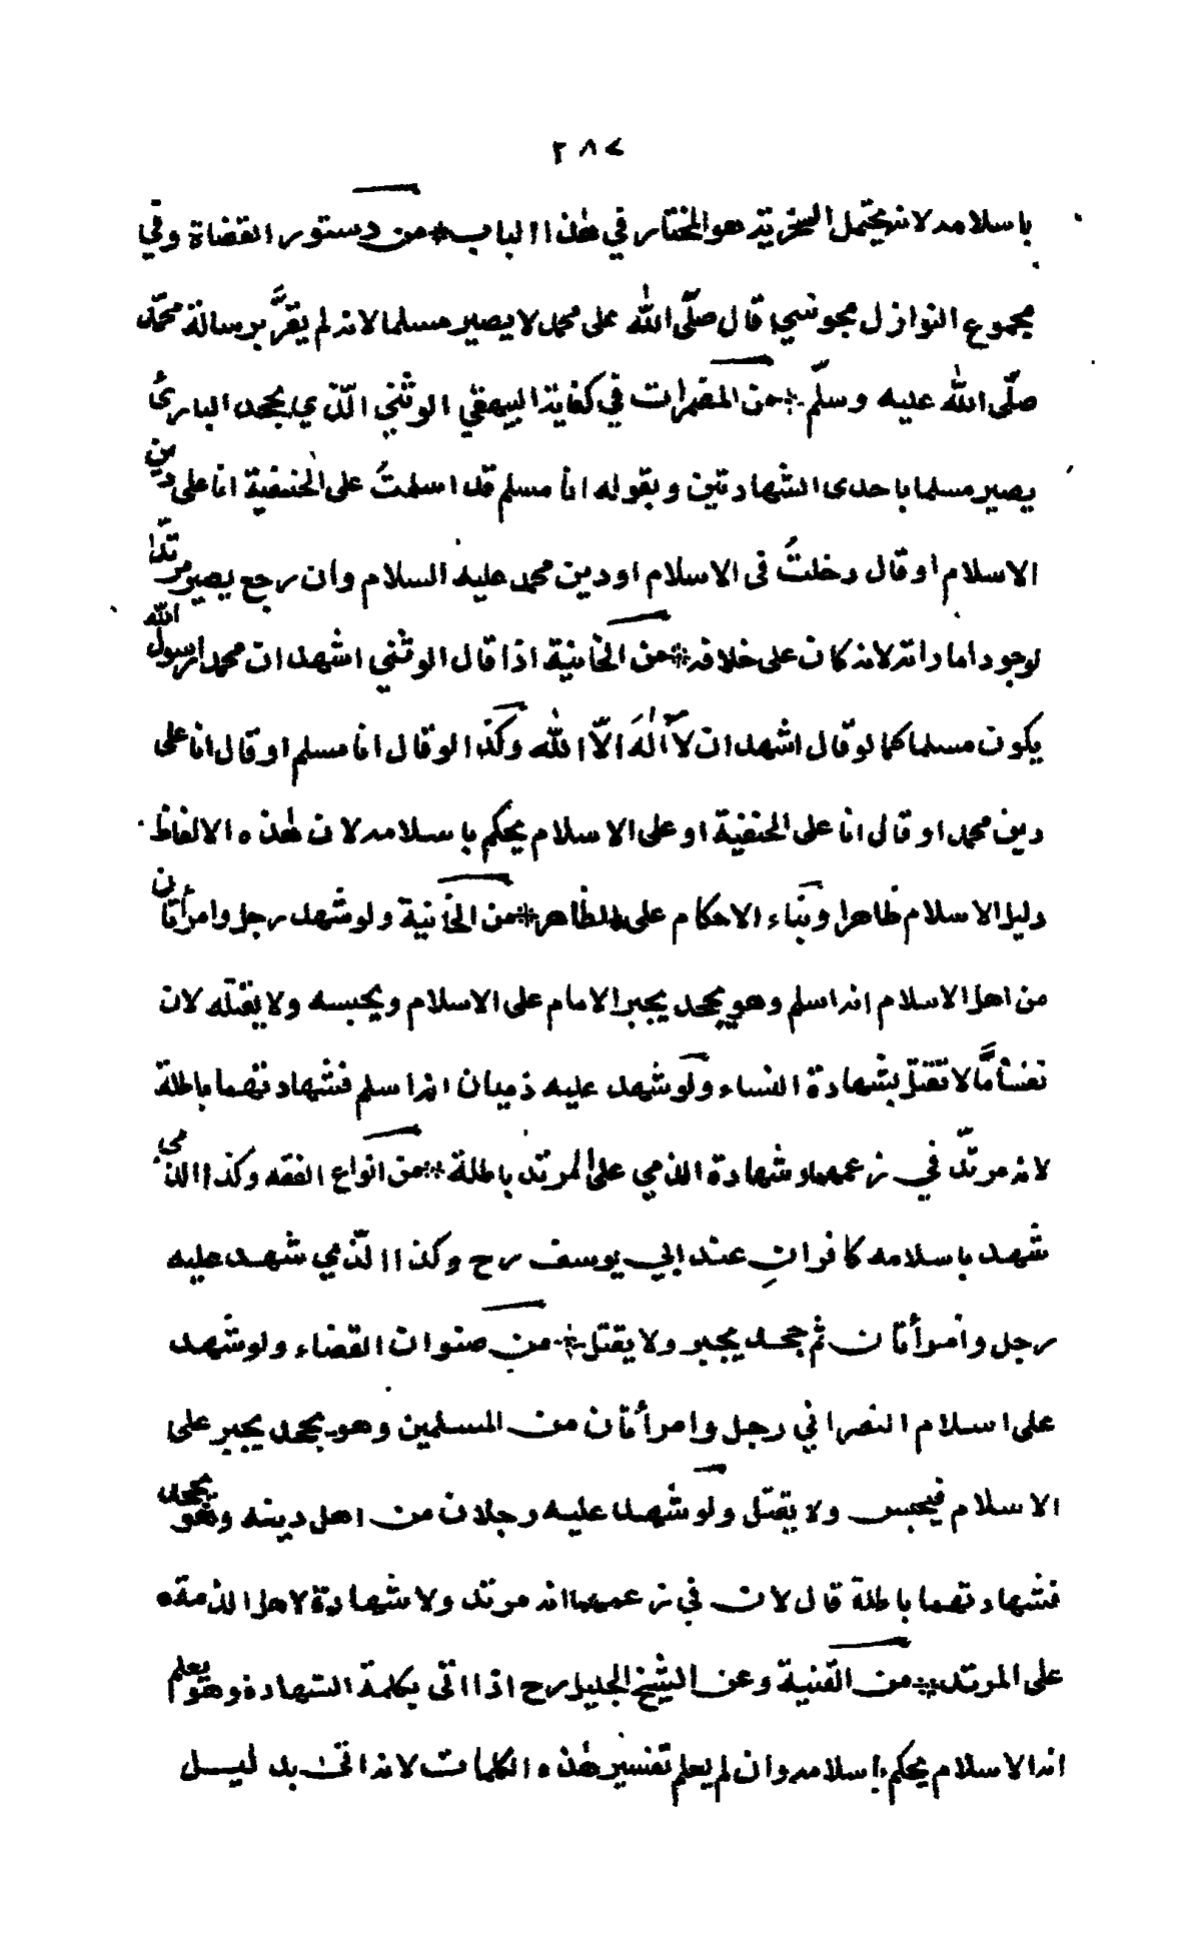 ٢٨٧
باسلامه لانه يحتمل السخرية هو المختار في هٰذا الباب * من دستور القضاة وفي
مجموع النوازل مجوسي قال صلّى الله على محمد لا يصير مسلما لانه لم يقرَّ برسالة محمّد
صلّى الله عليه وسلّم * من المضمرات في كفاية البيهقي الوثني الّذي يجحد البارئ
يصير مسلما باحدى الشهادتين وبقوله انا مسلم قد اسلمتُ على الحنيفية انا على دين
الاسلام او قال دخلتُ فى الاسلام او دين محمد عليه السلام وان رجع يصير مرتدّا
لوجود اماراته لانه كان على خلافه * من الخانية اذا قال الوثني اشهد ان محمدا رسول الله
يكون مسلما كما لو قال اشهد ان لآ الٰهَ الّا الله وكذا لو قال انا مسلم او قال انا على
دين محمد او قال انا على الحنفية او على الاسلام يحكم باسلامه لان هٰذه الالفاظ
دليل الاسلام ظاهرا وبناء الاحكام على الظاهر * من الخانية ولو شهد رجل وامرأتان
من اهل الاسلام انه اسلم وهو يجحد يجبر الامام على الاسلام ويحبسه ولا يقتله لان
نفسًا مّا لا تقتل بشهادة النساء ولو شهد عليه ذميان انه اسلم فشهادتهما باطلة
لانه مرتدّ في زعمهما وشهادة الذمي على المرتد باطلة * من انواع الفقه وكذا الذمي
شهد باسلامه كافرانِ عند ابي يوسف رح وكذا الّذمي شهد عليه
رجل وامرأتان ثم جحد يجبر ولا يقتل * من صنوان القضاء ولو شهد
على اسلام النصراني رجل وامرأتان من المسلمين وهو يجحد يجبر على
الاسلام فيحبس ولا يقتل ولو شهد عليه رجلان من اهل دينه وهو يجحد
فشهادتهما باطلة قال لان في زعمهما انه مرتد ولا شهادة لاهل الذمة
على المرتد * من القنية وعن الشيخ الجليل رح اذا اتى بكلمة الشهادة وهو يعلم
انه الاسلام يحكم باسلامه وان لم يعلم تفسير هٰذه الكلمات لانه اتى بدليل